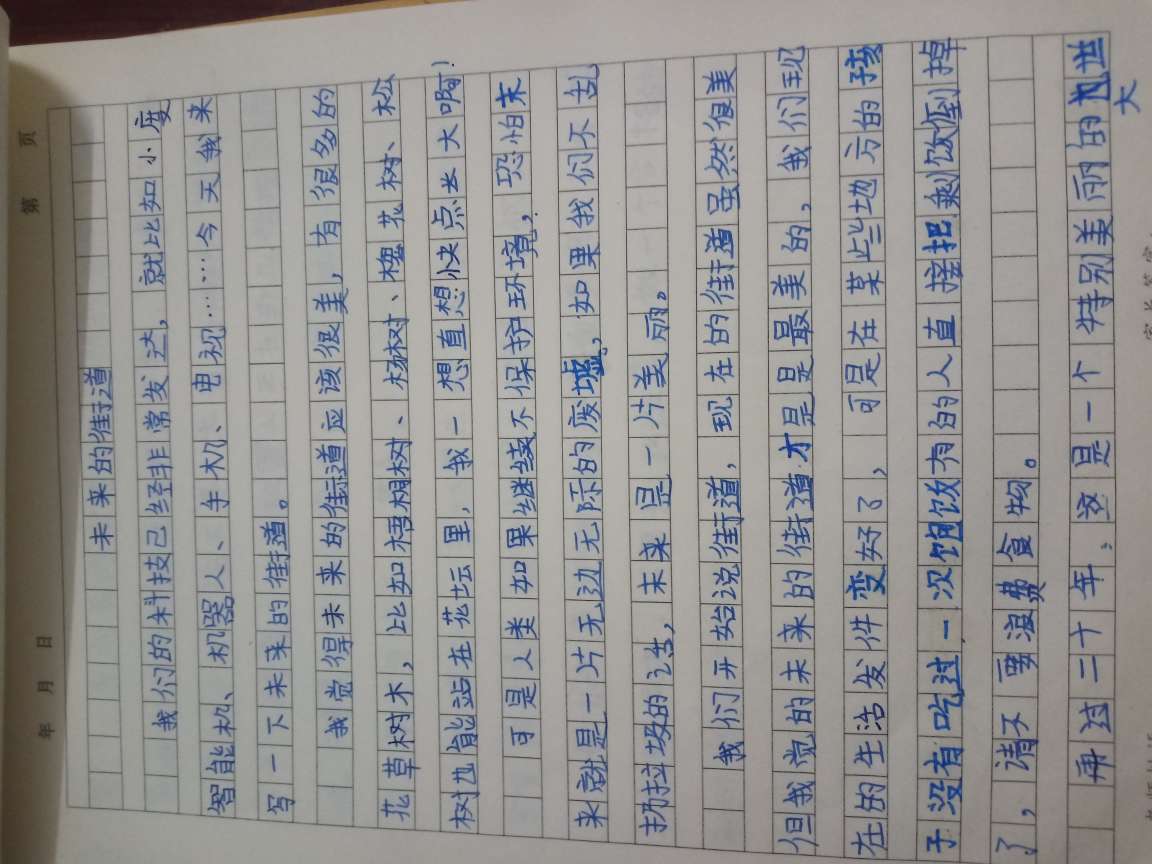 年 月 日 第 页
未来的街道
我们的科技已经非常发达,就比如小度
智能机、机器人、手机、电视……今天我来
写一下未来的街道。
我觉得未来的街道应该很美,有很多的
花草树木,比如梧桐树、杨树、槐花树、松
树也能站在花坛里,我一想直想快点长大啊!
可是人类如果继续不保护环境,恐怕未
来就是一片无边无际的废墟,如果我们不乱
扔垃圾的话,未来是一片美丽。
我们开始说街道,现在的街道虽然很美
但我觉的未来的街道才是最美的,我们现
在的生活发件变好了,可是在某些地方的孩
子没有吃过一次饱饭有的人直接把剩饭倒掉
了,请不要浪费食物。
再过二十年,这是一个特别美丽的
大